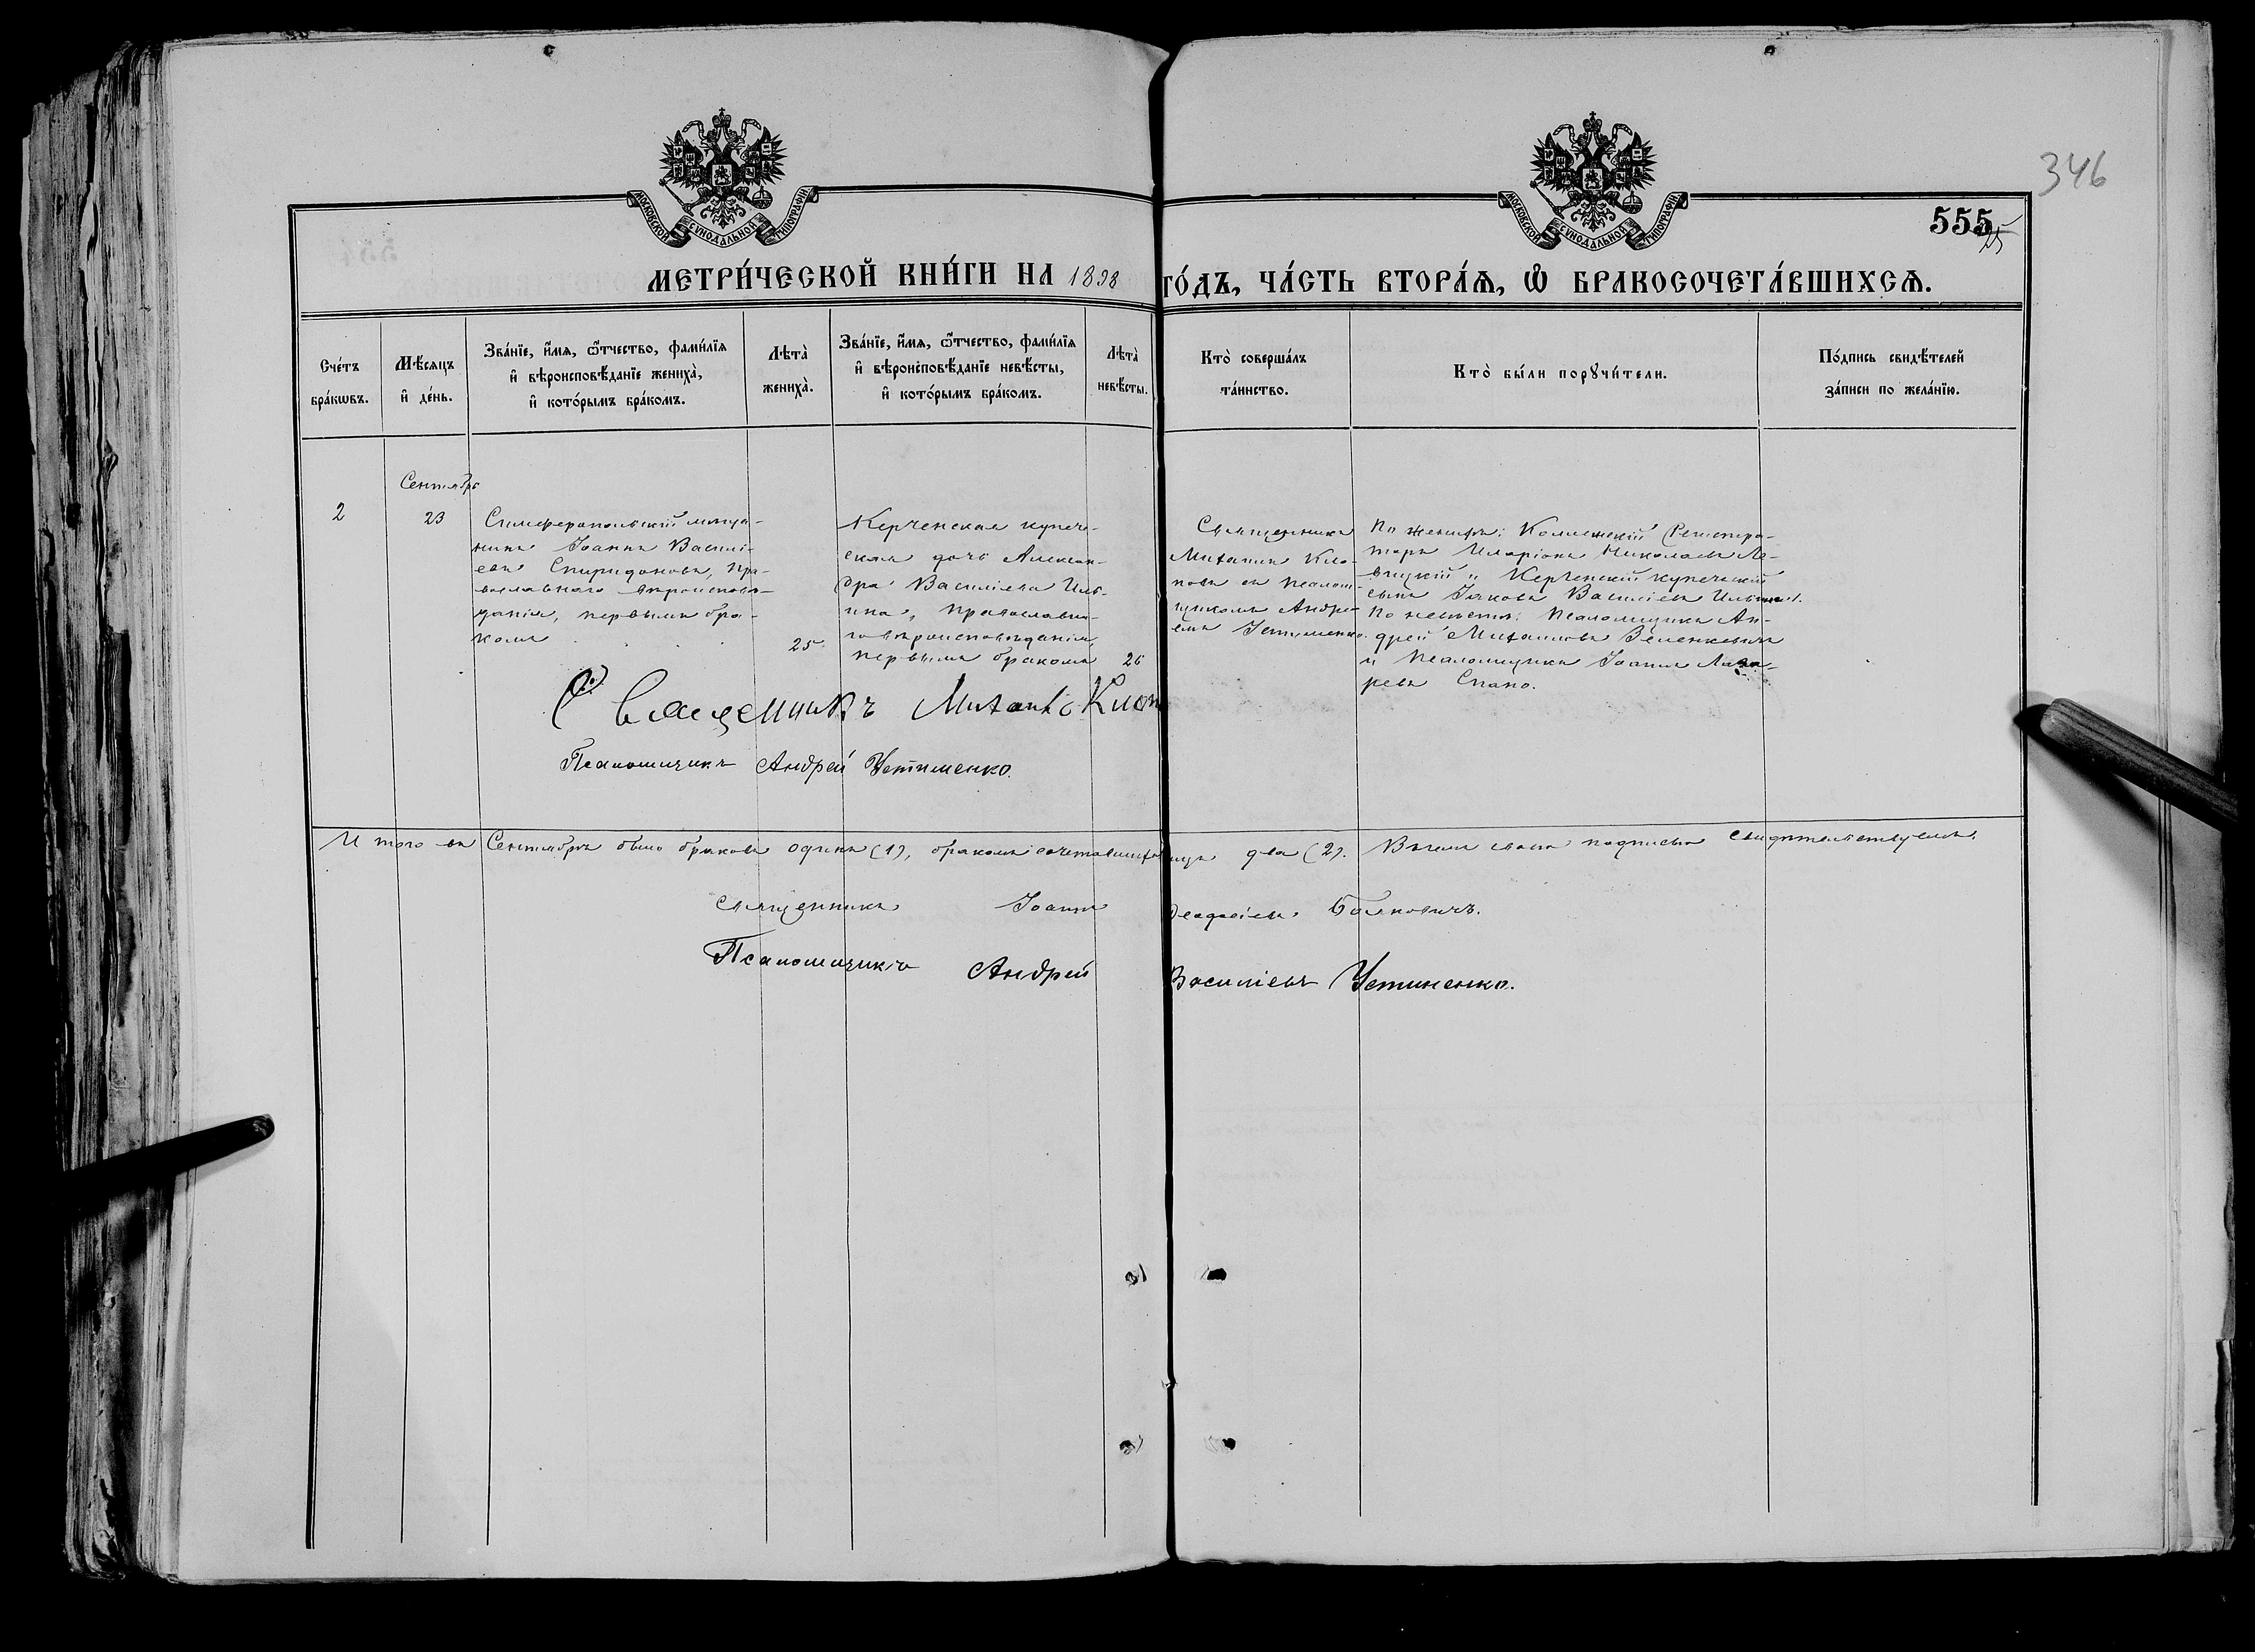 346
МОСКОВСКОЙ СѴНОДАЛЬНОЙ ТИПОГРАФІИ
МОСКОВСКОЙ СѴНОДАЛЬНОЙ ТИПОГРАФІИ
555
МЕТРИ́ЧЕСКОЙ КНИ́ГИ НА 1898 ГО́ДЪ, ЧА́СТЬ ВТОРА́Ѧ, Ѽ БРАКОСОЧЕТА́ВШИХСѦ.
Сче́тъ
бра́кѡвъ.
Мѣ́сяцъ
и҆ де́нь.
Зва́нїе, и҆́мѧ, ѻ҆́тчество, фамѝлїѧ
и҆ вѣроисповѣ́данїе жениха̀,
и҆ кото́рымъ бра́комъ.
Лѣта̀
жениха̀.
Зва́нїе, и҆́мѧ, ѻ҆́тчество, фамѝлїѧ
и҆ вѣроисповѣ́данїе невѣ́сты,
и҆ кото́рымъ бра́комъ.
Лѣта̀
невѣ́сты.
Кто̀ соверша́лъ
та́инство.
Кто̀ бы́ли порꙋчи́тели.
По́дпись свидѣ́телей
за́писи по жела́нїю.
Сентябрь
2
23
Симферопольскій мѣща-
нинъ Іоаннъ Василі-
евъ Спиридоновъ, пра-
вославнаго вѣроисповѣ-
данія, первымъ бра-
комъ
25
Керченская купече-
ская дочь Алексан-
дра Василіева Иль-
ина, православна-
го вѣроисповѣданія,
первымъ бракомъ
26
Священникъ
Михаилъ Кло-
повъ съ псалом-
щикомъ Андре-
емъ Устименко.
По женихѣ: Коллежскій Регистра-
торъ Иларіонъ Николаевъ Ле-
вицкій и Керченскій купеческій
сынъ Іаковъ Василіевъ Ильинъ.
По невѣстѣ: псаломщикъ Ан-
дрей Михаиловъ Зеленкевичъ
и псаломщикъ Іоаннъ Лаза-
ревъ Спано.
Священникъ Михаилъ Клоп
Псаломщикъ Андрей Устименко.
Итого въ Сентябрѣ было браковъ одинъ (1), бракомъ сочетавшихся лицъ два (2). Въ чемъ своею подписью свидѣтельствуемъ,
Священникъ Іоаннъ Боянович.
Псаломщикъ Андрей Василіевъ Устименко.